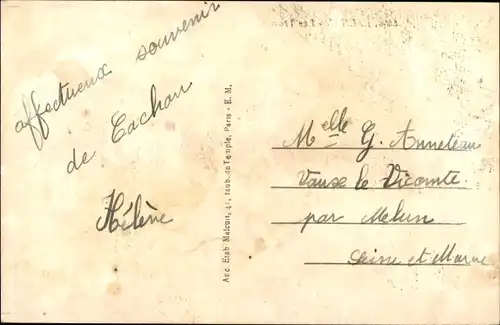 affectueux souvenir
de Cachan
Hélène
Anc. Etab Malcuit, 41, faub. du Temple, Paris - E. M.
Melle G. Anneteau
Vaux le Vicomte
par Melun
Seine et Marne